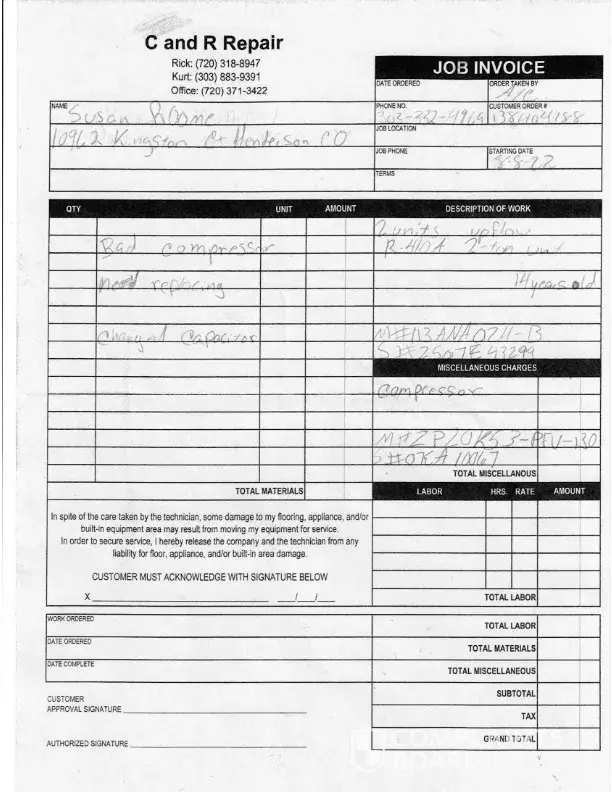 C and R Repair
Rick: (720) 318-8947
Kurt: (303) 883-9391
Office: (720) 371-3422
JOB INVOICE
DATE ORDERED
ORDER TAKEN BY
A/C
NAME
Susan
PHONE NO.
CUSTOMER ORDER #
138404188
10962 Kingston Ct Henderson CO
JOB LOCATION
JOB PHONE
STARTING DATE
8-8-22
TERMS
QTY UNIT AMOUNT DESCRIPTION OF WORK
2 units upflow
Bad compressor
R-410A 2-ton unit
need replacing
14 years old
Changed Capacitor
M#113ANA024-B
S#2507E43299
MISCELLANEOUS CHARGES
Compressor
S#07KA
TOTAL MISCELLANOUS
TOTAL MATERIALS
LABOR HRS. RATE AMOUNT
In spite of the care taken by the technician, some damage to my flooring, appliance, and/or
built-in equipment area may result from moving my equipment for service.
In order to secure service, I hereby release the company and the technician from any
liability for floor, appliance, and/or built-in area damage.
CUSTOMER MUST ACKNOWLEDGE WITH SIGNATURE BELOW
X ____ __/__/__
TOTAL LABOR
WORK ORDERED
TOTAL LABOR
DATE ORDERED
TOTAL MATERIALS
DATE COMPLETE
TOTAL MISCELLANEOUS
SUBTOTAL
CUSTOMER
APPROVAL SIGNATURE
TAX
AUTHORIZED SIGNATURE
GRAND TOTAL
COMPLAINTS
BOARD